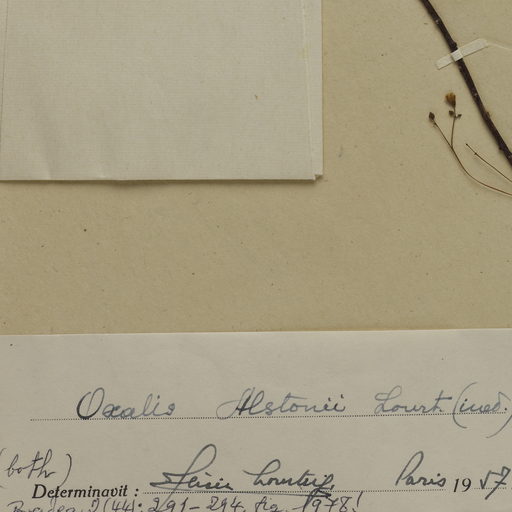 Oxalis Alstonii Lourt. (ined.)
(both)
Determinavit : Alicia Lourteig, Paris 1957
2(44): 291-294, fig. 1978!